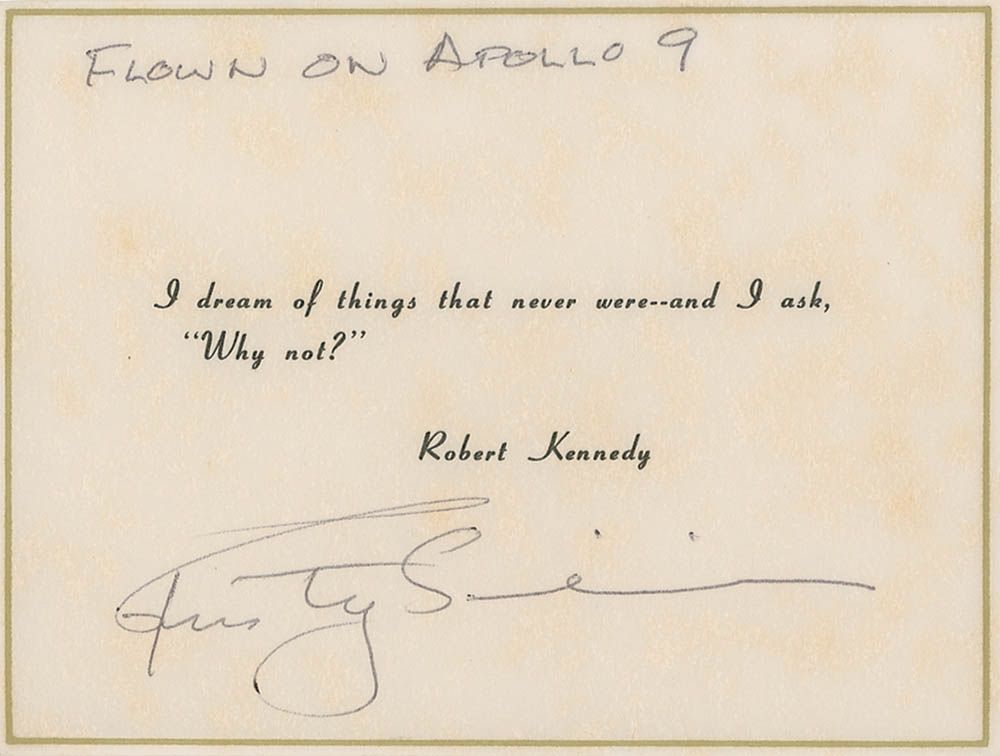 FLOWN ON APOLLO 9
I dream of things that never were--and I ask,
“Why not?”
Robert Kennedy
Rusty S